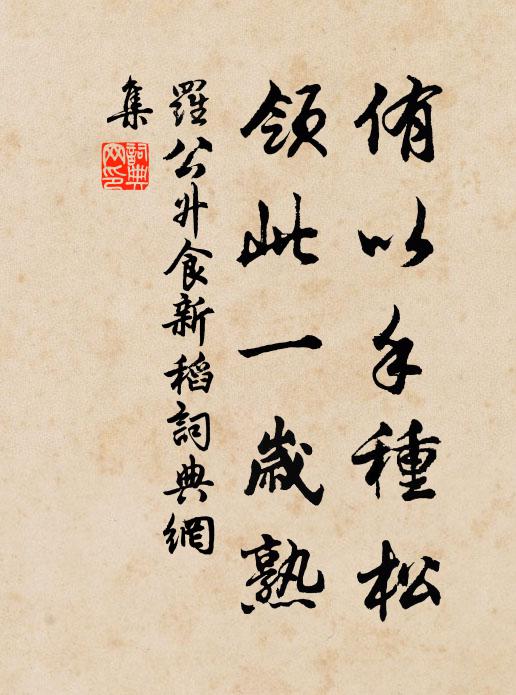 侑以手種松
領此一歲熟
羅公升食新稻詞典網
集
詞典
网印